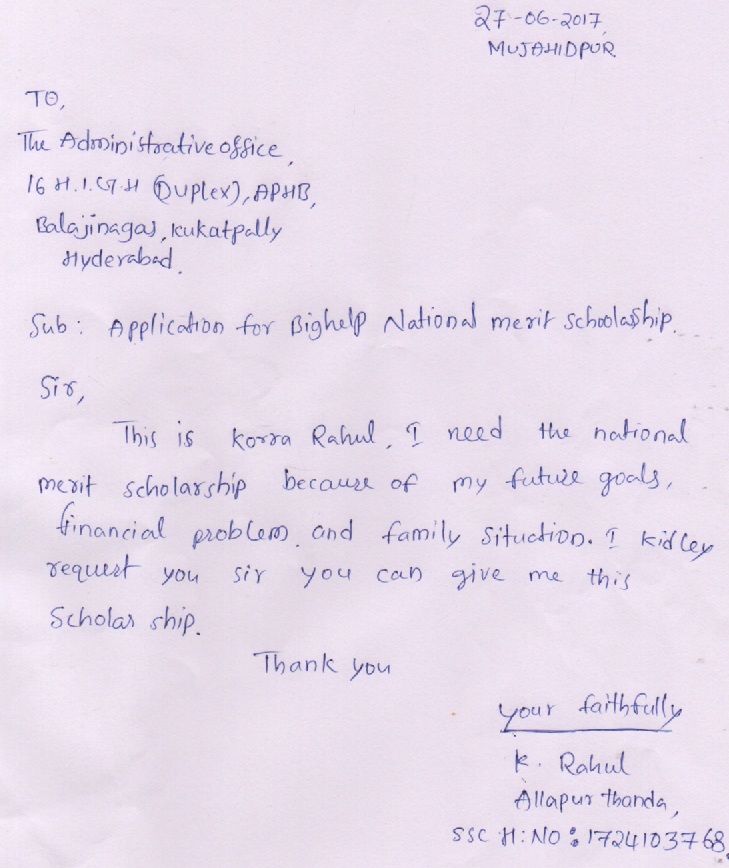 27-06-2017,
MUJAHIDPUR
TO,
The Administrative office,
16 H.I.G.H (Duplex), APHB,
Balajinagar, kukatpally
Hyderabad.
Sub: Application for Bighelp National merit schoolarship.
Sir,
This is korra Rahul, I need the national
merit scholarship because of my future goals,
financial problem and family situction. I kidley
request you sir you can give me this
Scholar ship.
Thank you
your faithfully
K. Rahul
Allapur thanda,
SSC H:NO: 1724103768